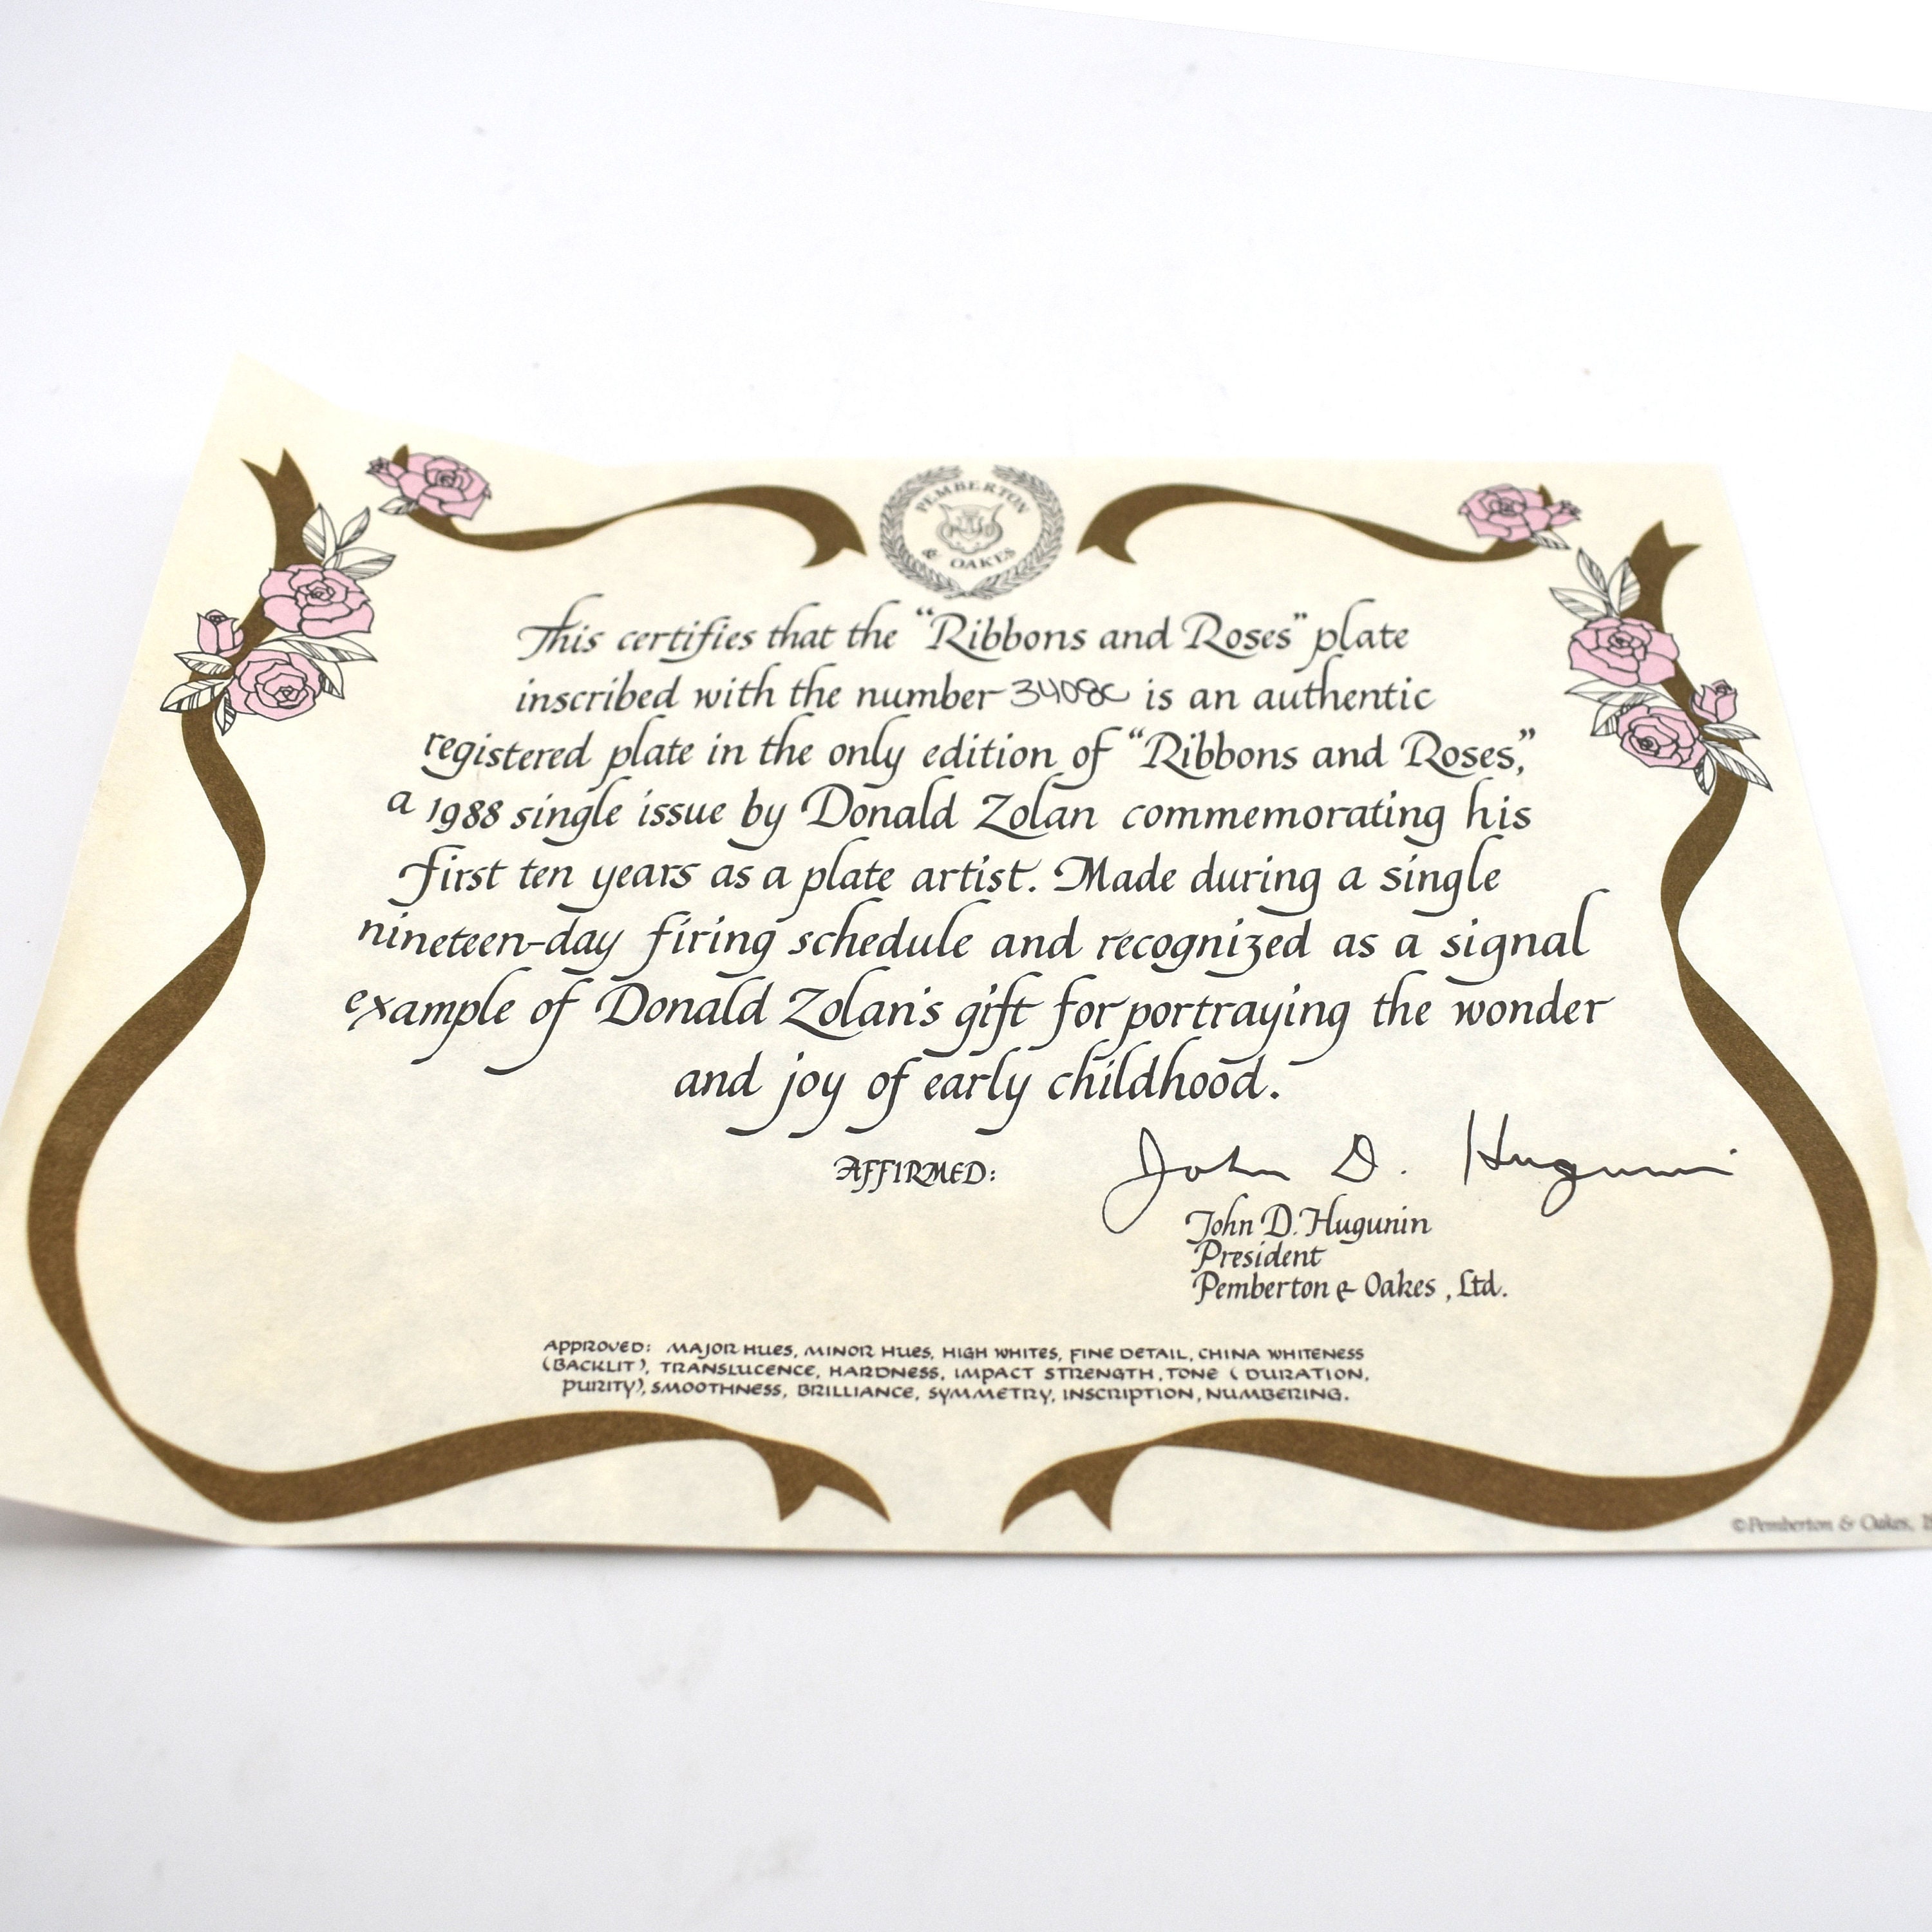 PEMBERTON
& OAKES
This certifies that the “Ribbons and Roses” plate
inscribed with the number 3408C is an authentic
registered plate in the only edition of “Ribbons and Roses,”
a 1988 single issue by Donald Zolan commemorating his
first ten years as a plate artist. Made during a single
nineteen-day firing schedule and recognized as a signal
example of Donald Zolan's gift for portraying the wonder
and joy of early childhood.
AFFIRMED: John D. Hugunin
John D. Hugunin
President
Pemberton & Oakes, Ltd.
APPROVED: MAJOR HUES, MINOR HUES, HIGH WHITES, FINE DETAIL, CHINA WHITENESS
(BACKLIT), TRANSLUCENCE, HARDNESS, IMPACT STRENGTH, TONE (DURATION,
PURITY), SMOOTHNESS, BRILLIANCE, SYMMETRY, INSCRIPTION, NUMBERING.
©Pemberton & Oakes,